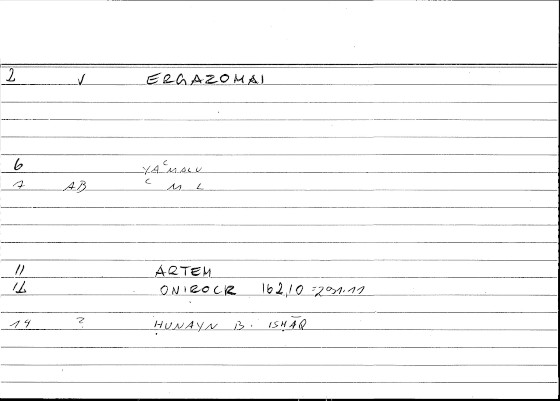 2 V ERGAZOMAI
6 YAʿMALU
7 AB ʿ M L
11 ARTEM
12 ONIROCR 162,10 = 291.11
14 ? ḤUNAYN B. ISḤĀQ